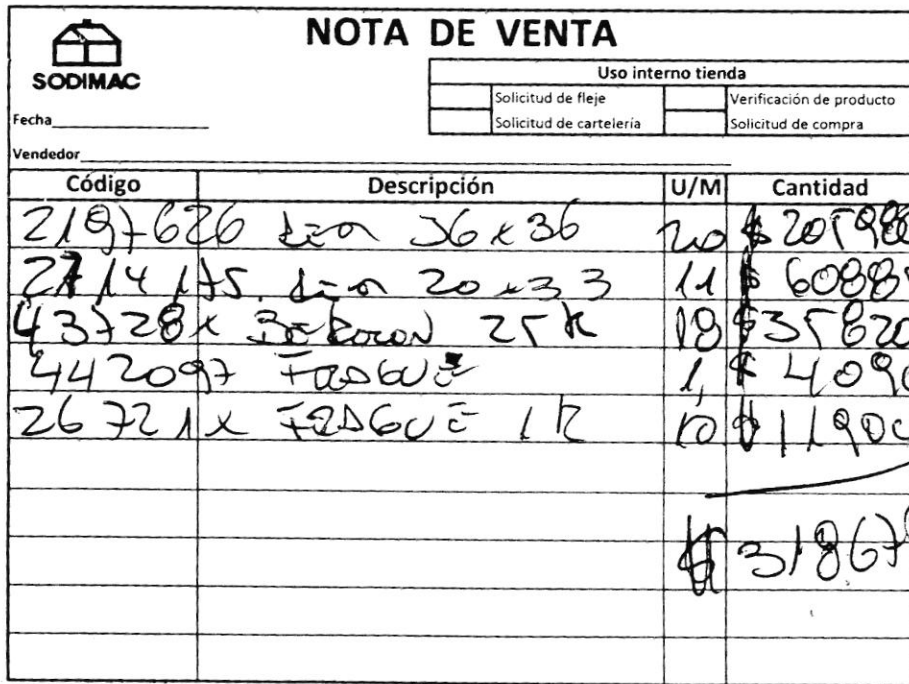 NOTA DE VENTA
SODIMAC
Uso interno tienda
Solicitud de fleje Verificación de producto
Solicitud de cartelería Solicitud de compra
Fecha
Vendedor
Código Descripción U/M Cantidad
2197626 36x36 20 $ 205980
2714175 20x33 11 $ 6088
43728x 25K 18 $ 35820
442097 FRAGUE 1, $ 4090
26721x FRAGUE 1K 10 $ 11900
$ 31867